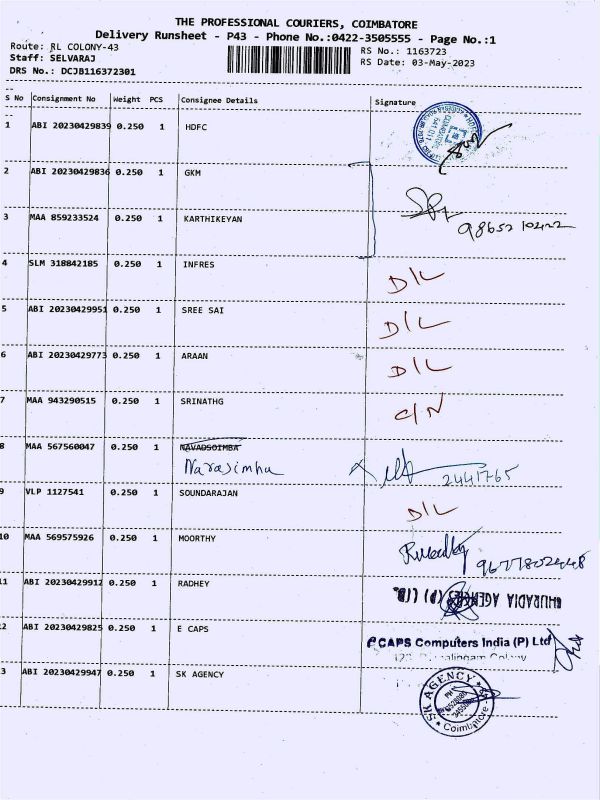 THE PROFESSIONAL COURIERS, COIMBATORE
Delivery Runsheet - P43 - Phone No.:0422-3505555 - Page No.:1
Route: RL COLONY-43
RS No.: 1163723
Staff: SELVARAJ
RS Date: 03-May-2023
DRS No.: DCJB116372301
S No Consignment No Weight PCS Consignee Details Signature
1 ABI 20230429839 0.250 1 HDFC
2 ABI 20230429836 0.250 1 GKM
3 MAA 859233524 0.250 1 KARTHIKEYAN
4 SLM 318842185 0.250 1 INFRES D/L
5 ABI 20230429951 0.250 1 SREE SAI D/L
6 ABI 20230429773 0.250 1 ARAAN D/L
7 MAA 943290515 0.250 1 SRINATHG C/N
8 MAA 567560047 0.250 1 NAVADSOIMBA
Narasimha 2441765
9 VLP 1127541 0.250 1 SOUNDARAJAN D/L
10 MAA 569575926 0.250 1 MOORTHY
11 ABI 20230429912 0.250 1 RADHEY
BHURADIA AGENCIES (P) LTD.
2 ABI 20230429825 0.250 1 E CAPS
eCAPS Computers India (P) Ltd
3 ABI 20230429947 0.250 1 SK AGENCY
SK AGENCY
Coimbatore